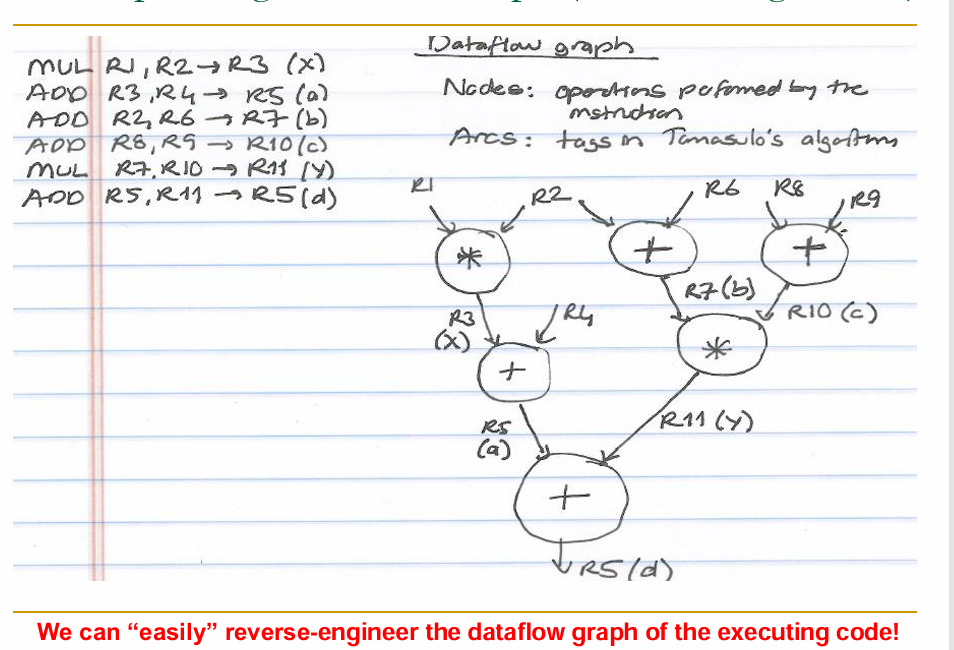 MUL R1, R2 → R3 (X)
ADD R3, R4 → R5 (a)
ADD R2, R6 → R7 (b)
ADD R8, R9 → R10 (c)
MUL R7, R10 → R11 (Y)
ADD R5, R11 → R5 (d)
Dataflow graph
Nodes: operations performed by the
instruction
Arcs: tags in Tomasulo's algorithm
R1 R2 R6 R8 R9
* + +
R7 (b)
R3 R4 R10 (c)
(X)
+ *
R5 R11 (Y)
(a)
+
R5 (d)
We can “easily” reverse-engineer the dataflow graph of the executing code!